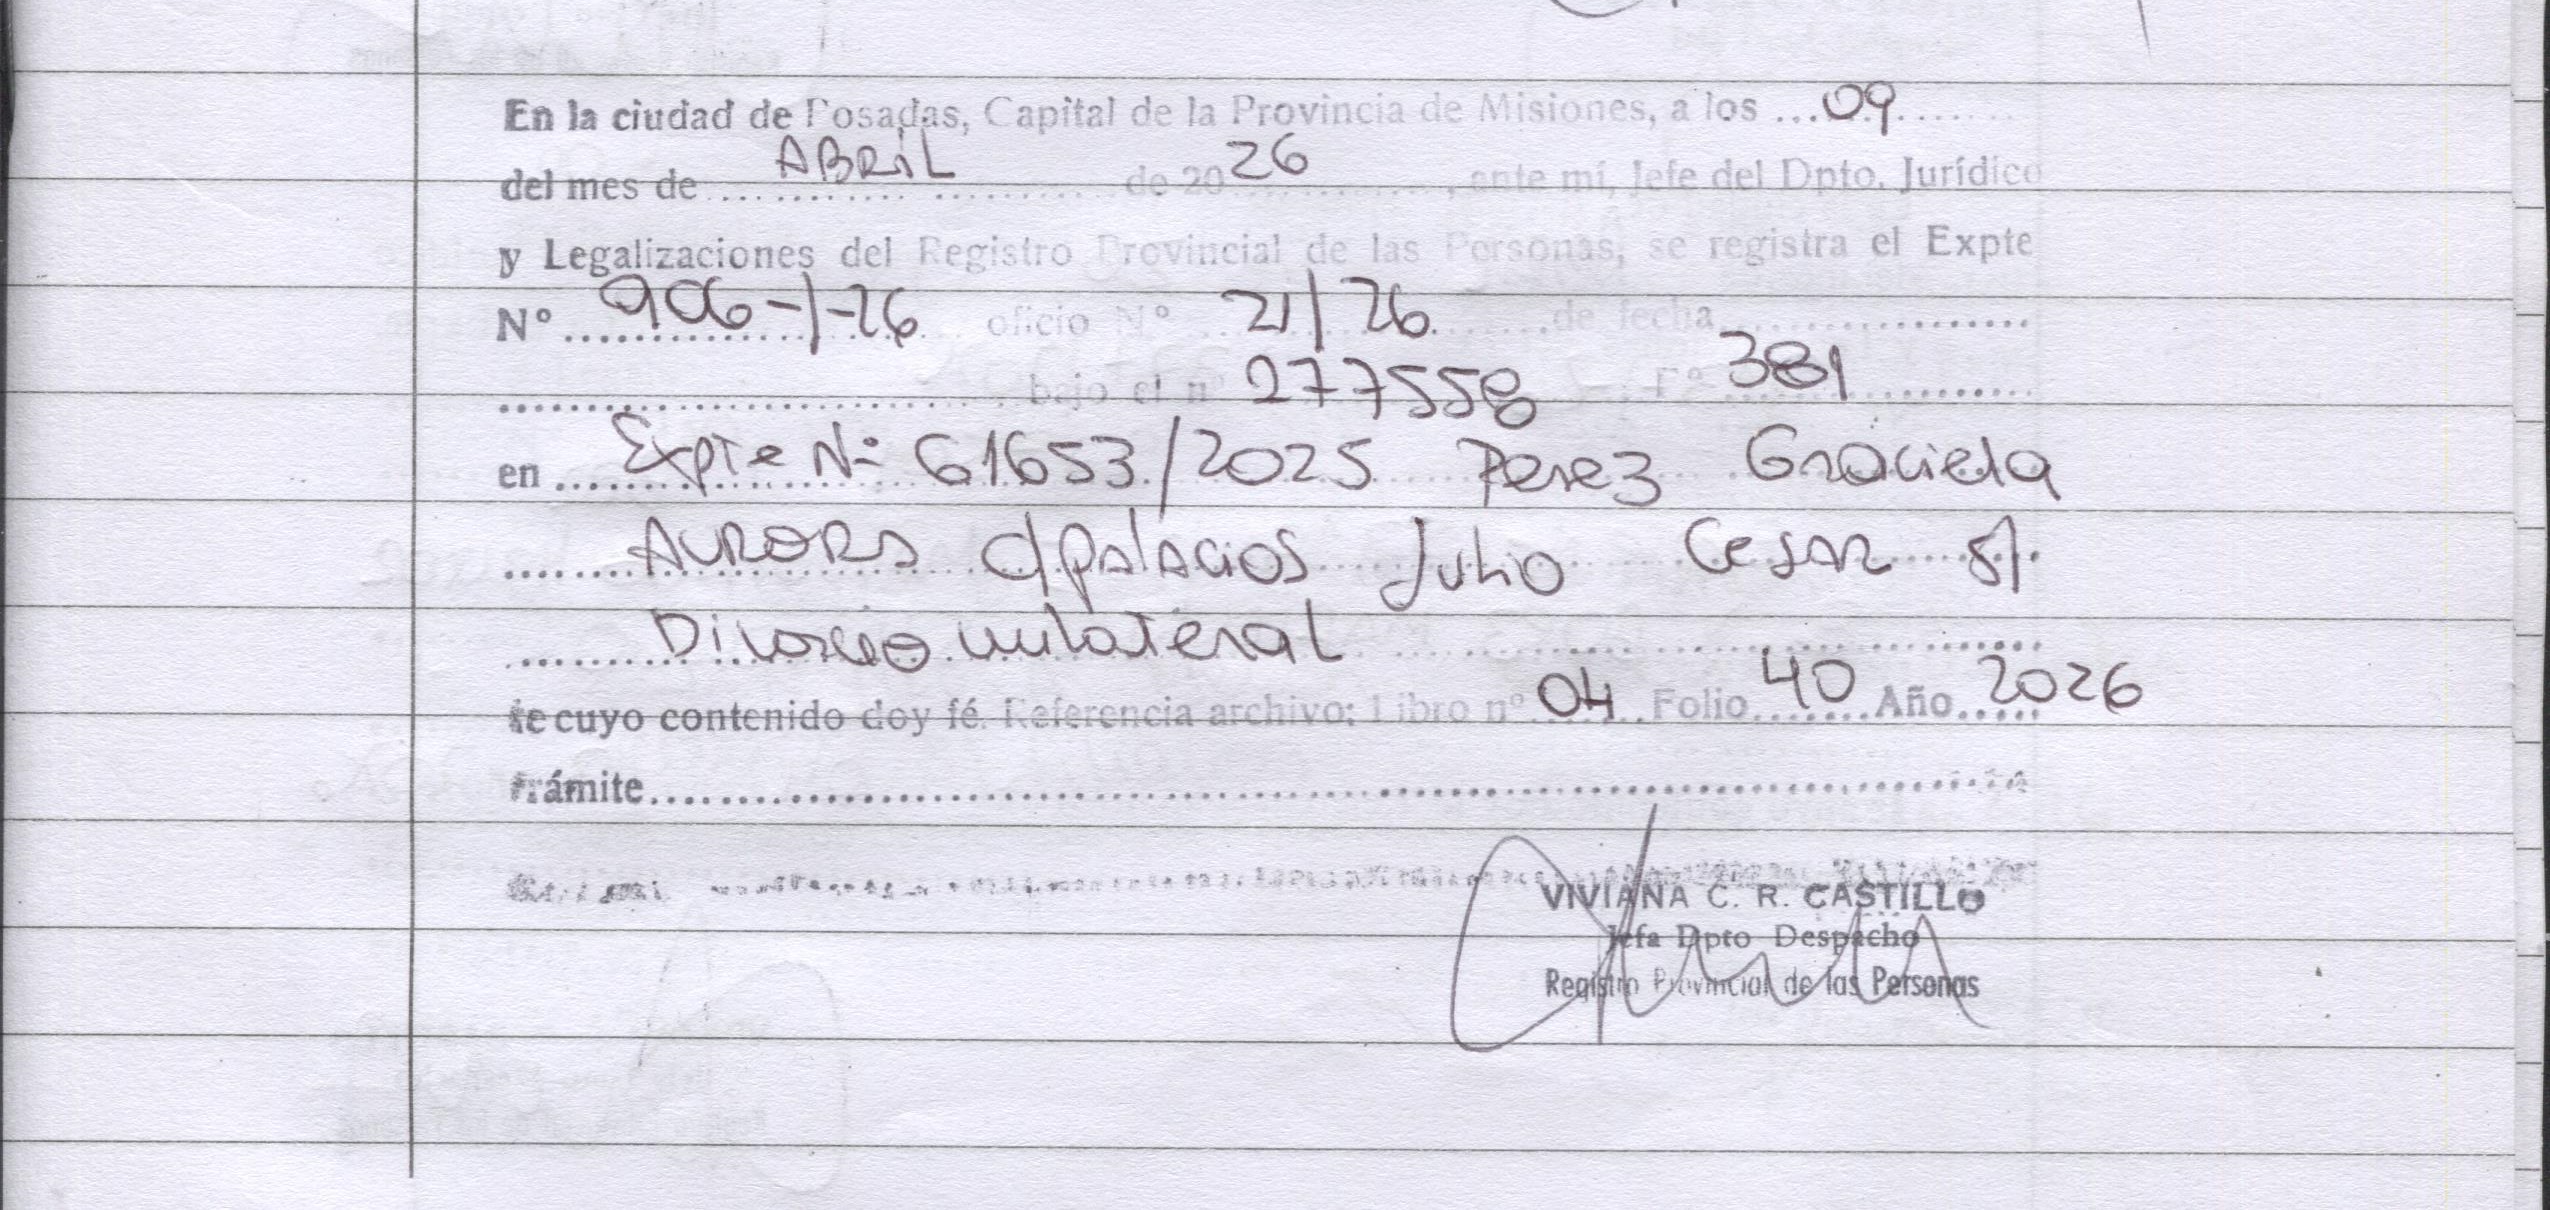 En la ciudad de Posadas, Capital de la Provincia de Misiones, a los ...09.......
del mes de ........ABRIL........ de 20 26 ..........., ante mí, Jefe del Dpto. Jurídico
y Legalizaciones del Registro Provincial de las Personas, se registra el Expte
Nº ....906-/-26.... oficio Nº ....21/26.... de fecha ................
.............................. bajo el nº 277558 Fº ...381..........
en ....Expte Nº 61653/2025 Perez Graciela
......Aurora c/Palacios Julio Cesar s/.
..........Divorcio unilateral....................
de cuyo contenido doy fé. Referencia archivo: Libro nº 04 Folio 40 Año 2026
trámite..............................................................
VIVIANA C. R. CASTILLO
Jefa Dpto Despacho
Registro Provincial de las Personas